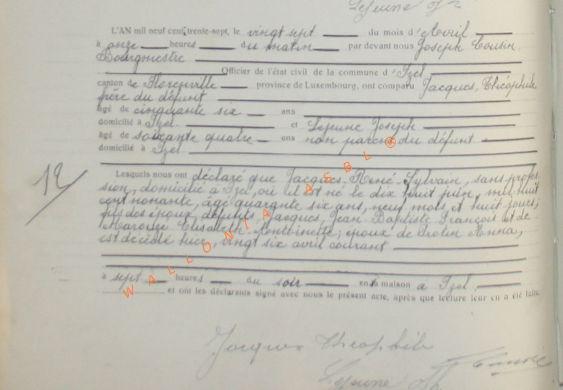 Lejeune Jh
L'AN mil neuf cent trente-sept, le vingt sept du mois d'Avril
à onze heures du matin par devant nous Joseph Cousin
Bourgmestre
Officier de l'état civil de la commune d'Izel
canton de Florenville province de Luxembourg, ont comparu Jacques, Théophile
frère du défunt
âgé de cinquante six ans
domicilié à Izel et Lejeune Joseph
âgé de soixante quatre ans non parent du défunt
domicilié à Izel
12
Lesquels nous ont déclaré que Jacques, René, Sylvain, sans profes
sion, domicilié à Izel, où il est né le dix huit juin, mil huit
cent nonante, âgé quarante six ans, neuf mois et huit jours,
fils des époux, défunts, Jacques, Jean Baptiste François et de
Elisabeth Antoinette, époux de Anna,
est décédé hier, vingt six avril courant
à sept heures du soir en sa maison à Izel
et ont les déclarants signé avec nous le présent acte, après que lecture leur en a été faite.
WALLONIA ASBL ©
Jacques Théophile
Lejeune Jh Cousin